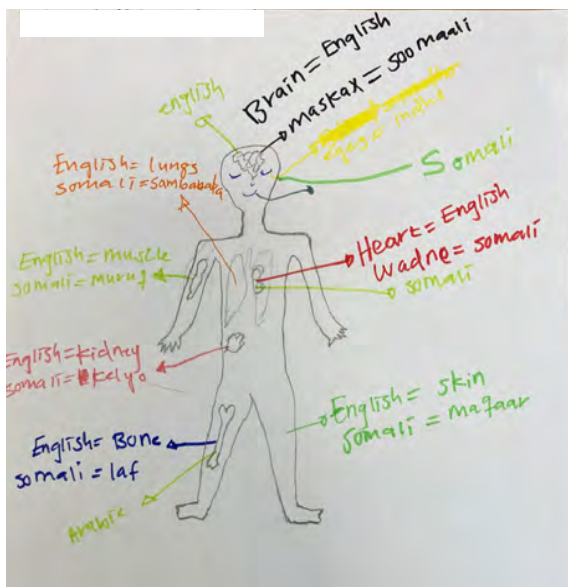 english
Brain = English
maskax = soomaali
eyes = indho
Somali
English = lungs
somali = sambabaka
Heart = English
wadne = somali
somali
English = muscle
somali = muruq
English = kidney
somali = kelyo
English = skin
somali = maqaar
English = Bone
somali = laf
Arabic